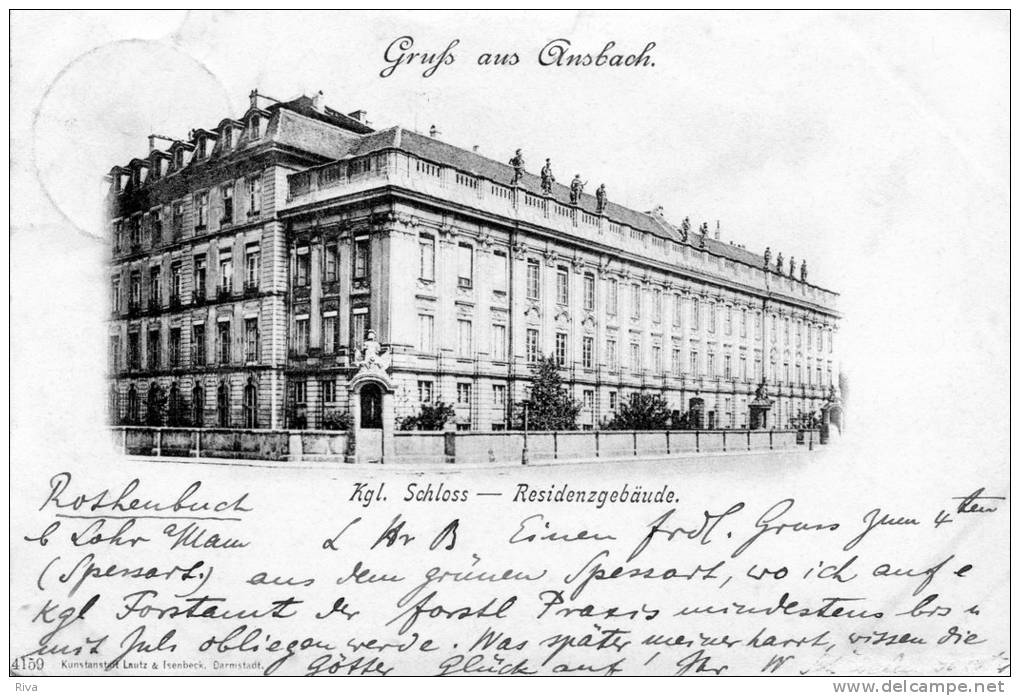 Gruß aus Ansbach.
Kgl. Schloss — Residenzgebäude.
Rothenbuch
b Lohr a/Main L Hr B Einen frdl. Gruss zum 4ten
(Spessart.) aus dem grünen Spessart, wo ich auf e
Kgl Forstamt der forstl Praxis mindestens bis
mit Juli obliegen werde. Was später meiner harrt, wissen die
Götter Glück auf! Ihr W
4159 Kunstanstalt Lautz & Isenbeck. Darmstadt.
Riva
www.delcampe.net